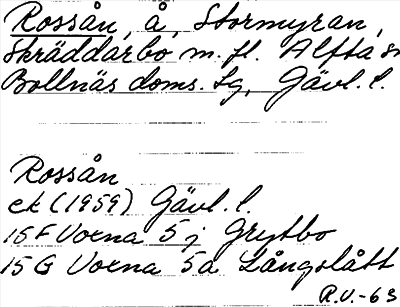 Rossån, å, Stormyran,
Skräddarbo m. fl. Alfta sn
Bollnäs doms. tg, Gävl. l.
Rossån
ek (1959) Gävl. l.
15 F Voxna 5 j Grytbo
15 G Voxna 5 a Långslått
R.V.-63